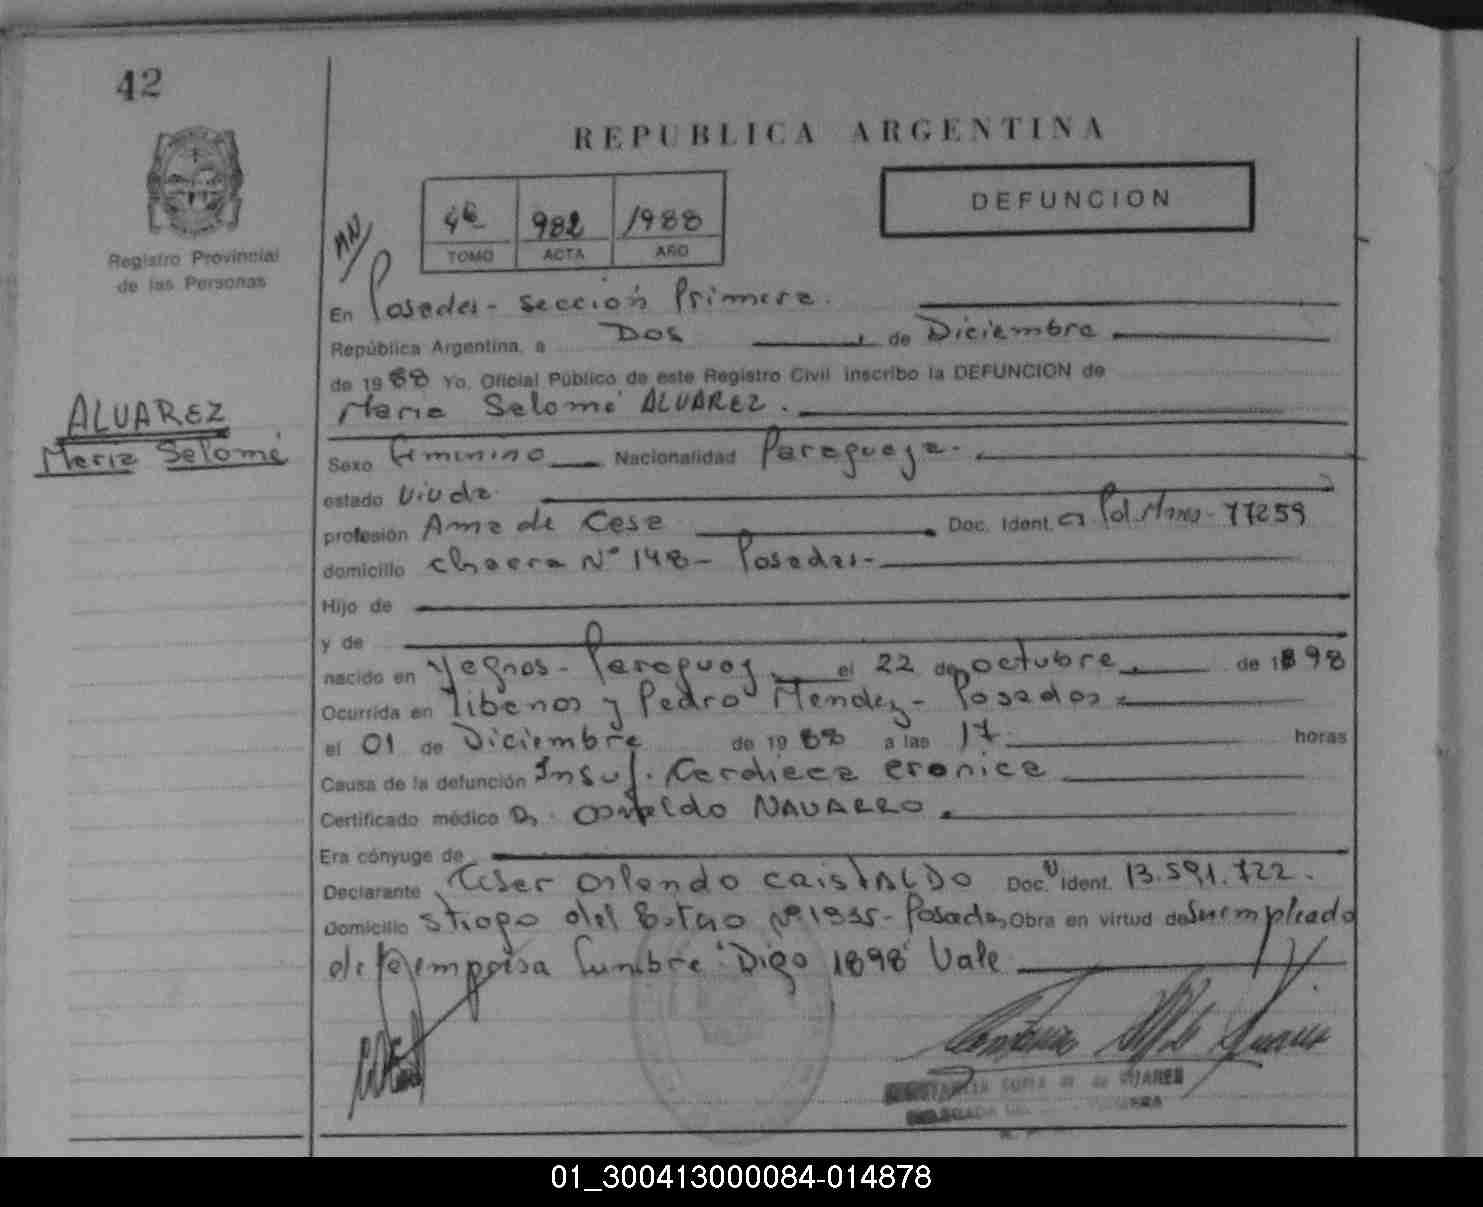 42
REPUBLICA ARGENTINA
DEFUNCION
982 1988
TOMO ACTA AÑO
Registro Provincial
de las Personas
En Posadas - Sección Primera.
República Argentina, a Dos de Diciembre
de 1988 Yo, Oficial Público de este Registro Civil inscribo la DEFUNCION de
ALVAREZ
María Salomé
María Salomé ALVAREZ.
Sexo femenino Nacionalidad Paraguaya.
estado Viuda
profesión Ama de Casa Doc. Ident. Pol. Mnes - 77259
domicilio chacra Nº 148 - Posadas -
Hijo de
y de
nacido en Yegros - Paraguay el 22 de octubre de 1898
Ocurrida en y Pedro Mendez - Posadas
el 01 de Diciembre de 1988 a las 17 horas
Causa de la defunción Insuf. Cardiaca cronica
Certificado médico Dr. Osvaldo NAVARRO.
Era cónyuge de
Declarante Orlando Doc. Ident. 13.591.722.
Domicilio del Estero Nº 1935 - Posadas Obra en virtud de Ser empleado
de la empresa funebre "Digo 1898" Vale
01_300413000084-014878